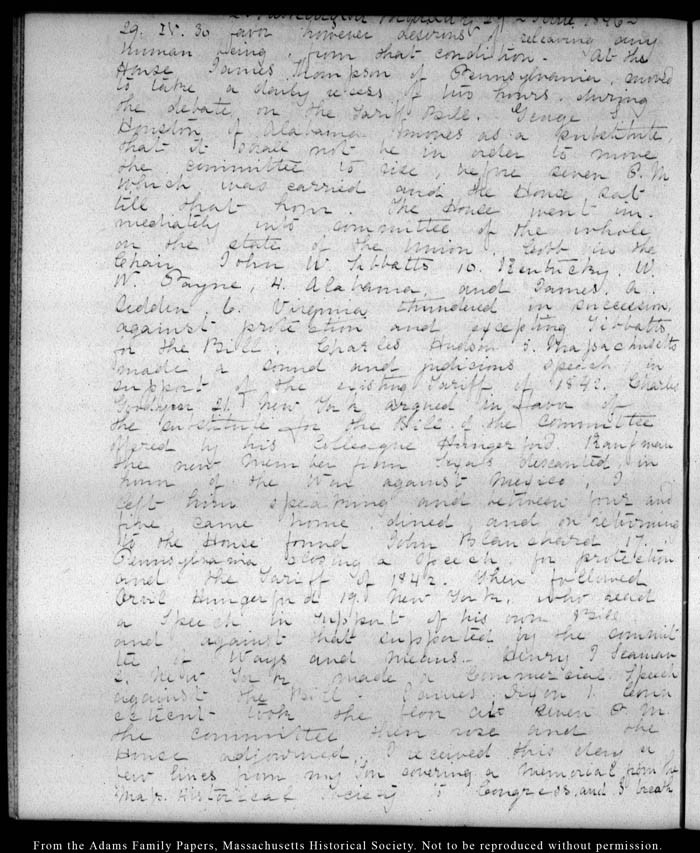 2. Washington Monday 29 June 1846
29. IV. 30 favor however desirous of relieving any
human being, from that condition. At the
House James Thompson of Pennsylvania, moved
to take a daily recess of two hours, during
the debate on the Tariff Bill. George S.
Houston of Alabama moves as a substitute,
that it shall not be in order to move
the committee to rise, before seven P. M.
which was carried and the House sat
till that hour. The House went im-
mediately into committee of the whole,
on the state of the Union, Cobb in the
Chair. John W Tibbatts 10. Kentucky. W.
W. Payne, 4. Alabama, and James. A.
Sedden, 6. Virginia thundered in succession,
against protection and excepting Tibbatts,
for the Bill. Charles Hudson 5. Massachusetts
made a sound and judicious speech in
support of the existing Tariff of 1842. Charles
Goodyear 21. New York argued in favor of
the substitute for the Bill of the Committee
offered by his Colleague Hungerford. Kaufman
the new Member from Texas descanted, in
of the War against Mexico, I
left him speaking and between four and
five came home, dined, and on returning
to the House found John Blanchard 17.
Pennsylvania closing a Speech, for protection
and the Tariff of 1842. Then followed
Orvil Hungerford 19. New York, who read
a Speech in support of his own Bill
and against that supported by the commit-
tee of Ways and means. Henry I Seaman
2. New York made a Commercial Speech
against the Bill. James Dixon 1. Conn-
ecticut took the floor at seven P. M.
the committee then rose and the
House adjourned. I received this day a
few lines from my Son covering a memorial from the
Mass. Historical Society to Congress, and I
From the Adams Family Papers, Massachusetts Historical Society. Not to be reproduced without permission.